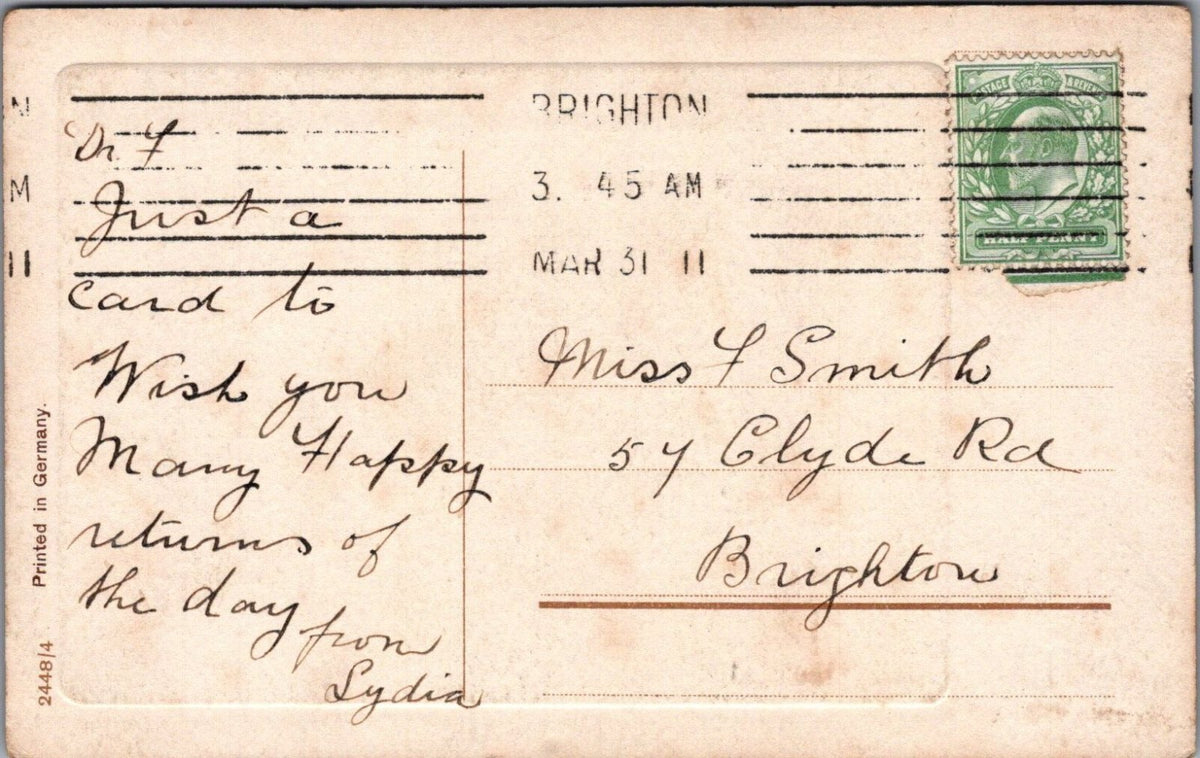 N
M
11
BRIGHTON
3. 45 AM
MAR 31 11
POSTAGE REVENUE
HALF PENNY
Dr F
Just a
card to
Wish you
Many Happy
returns of
the day
from
Lydia
Miss F Smith
57 Clyde Rd
Brighton
Printed in Germany.
2448/4